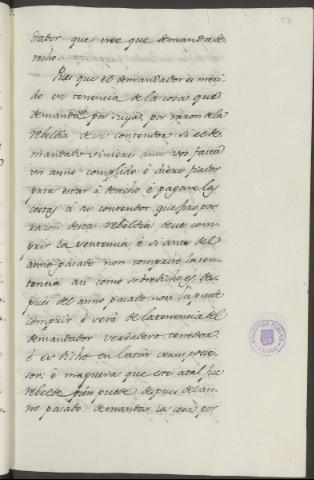 dador que cree que demanda de-
recho.
Pues que el demandador es meti-
do en tenencia de la cosa que
demanda por suya por razon de la
rebeldia de su contendor si el de-
mandado viniere ante vos fasta
un anno complido é diere fiador
para estar á derecho é pagare las
costas á su contendor que fizo por
razon desta rebeldia deve com-
prir la sentencia é si ante del
anno pasado non comprire la sen-
tencia asi como sobredicho es, des-
pues del anno pasado non la puede
comprir é será de la tenencia el
demandador verdadero tenedor
é es dicho en latin verus posse-
sor: é maguera que este atal fue
rebelde puede despues del an-
no pasado demandar la cosa por